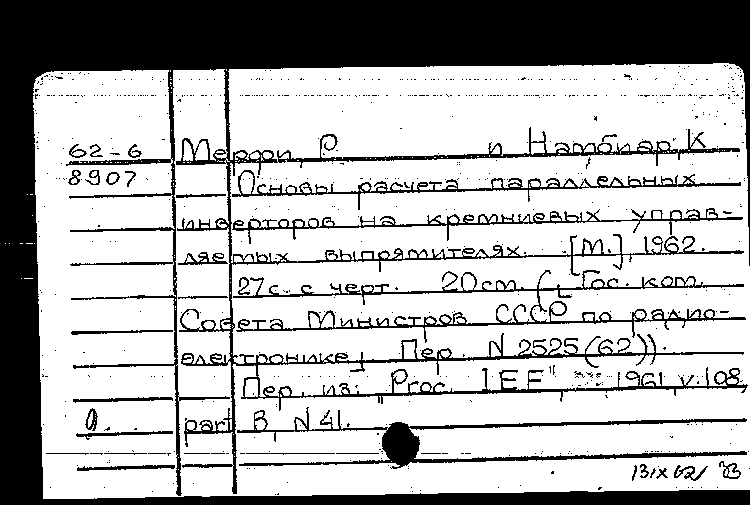 62-6 Мерфи, Р и Намбиар, К
8907 Основы расчета параллельных
инверторов на кремниевых управ-
ляемых выпрямителях. [М.], 1962.
27с. с черт. 20см. ([Гос. ком.
Совета Министров СССР по радио-
электронике] Пер. N 2525(62)).
Пер. из: "Proc. IEE" 1961, v.108,
part B, N 41.
13 IX 62